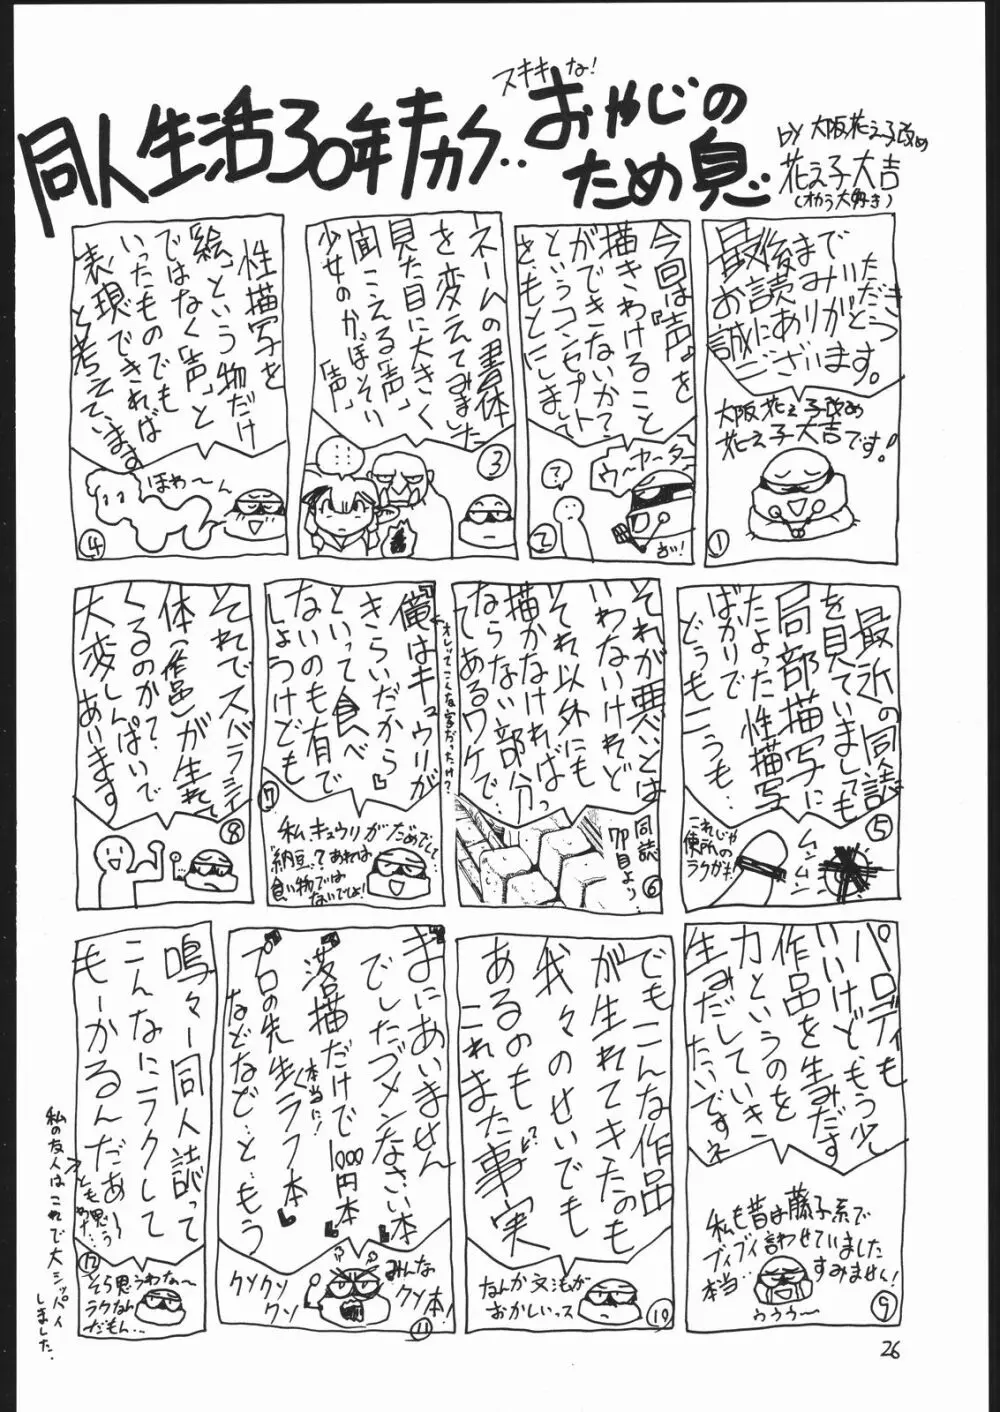 スキキな!
同人生活30年チカク‥おやじの
ため息
by 大阪花え子改め
花え子大吉
(オカラ大好き)
最後まで
お読みいただき
誠にありがとう
ございます。
大阪花え子改め
花え子大吉です!
①
今回は『声』を
描きわけること
ができないかて
というコンセプト
をもとにしまして
?
ウーヤーター
②
ネームの書体
を変えてみました
見た目に大きく
聞こえる「声」
少女のかぼそい
「声」
③
性描写を
「絵」という物だけ
ではなく「声」と
いったものでも
表現できれば
と考えています
ほわ〜ん
④
最近の同誌
を見ていましても
局部描写に
たよった性描写
ばかりで
どうもこうも…
これじゃ
便所の
ラクガキ!
ムンムン
⑤
それが悪いとは
いわないけれど
それ以外にも
描かなければっ
ならない部分
てしあるワケで…
同誌
7P目より…
⑥
俺はキュウリが
きらいだから
といって食べ
ないのも有で
しょうけども
オレってこんな字だったけ?
私、キュウリがだめでして…
納豆…?あれは
食い物では
ないでしょ!
⑦
それでスバラシイ
体(作品)が生れて
くるのかて、
大変しんぱいで
あります
⑧
パロディも
いいけどもう少し
作品を生みだす
力というのを
生みだしていき
たいですネ
私も昔は藤子系で
ブイブイ言わせていました
本当…すみません!
ううう〜
⑨
でもこんな作品
が生れてきたのも
我々のせいでも
あるのも
これまた事実
なんか文法が
おかしいっス
⑩
まにあいません
でしたゴメンなさい本
落描だけで1000円本
本当に!
プロの先生ラフ本
などなど…ともう
クソクソ
クソ
みんな
クソ本!
⑪
嗚々ー同人誌って
こんなにラクして
もーかるんだあ〜
とも思う
わけ…
⑫
そら思うわな〜
ラクなん
だもん…
私の友人はこれで大シッパイ
しました.
26